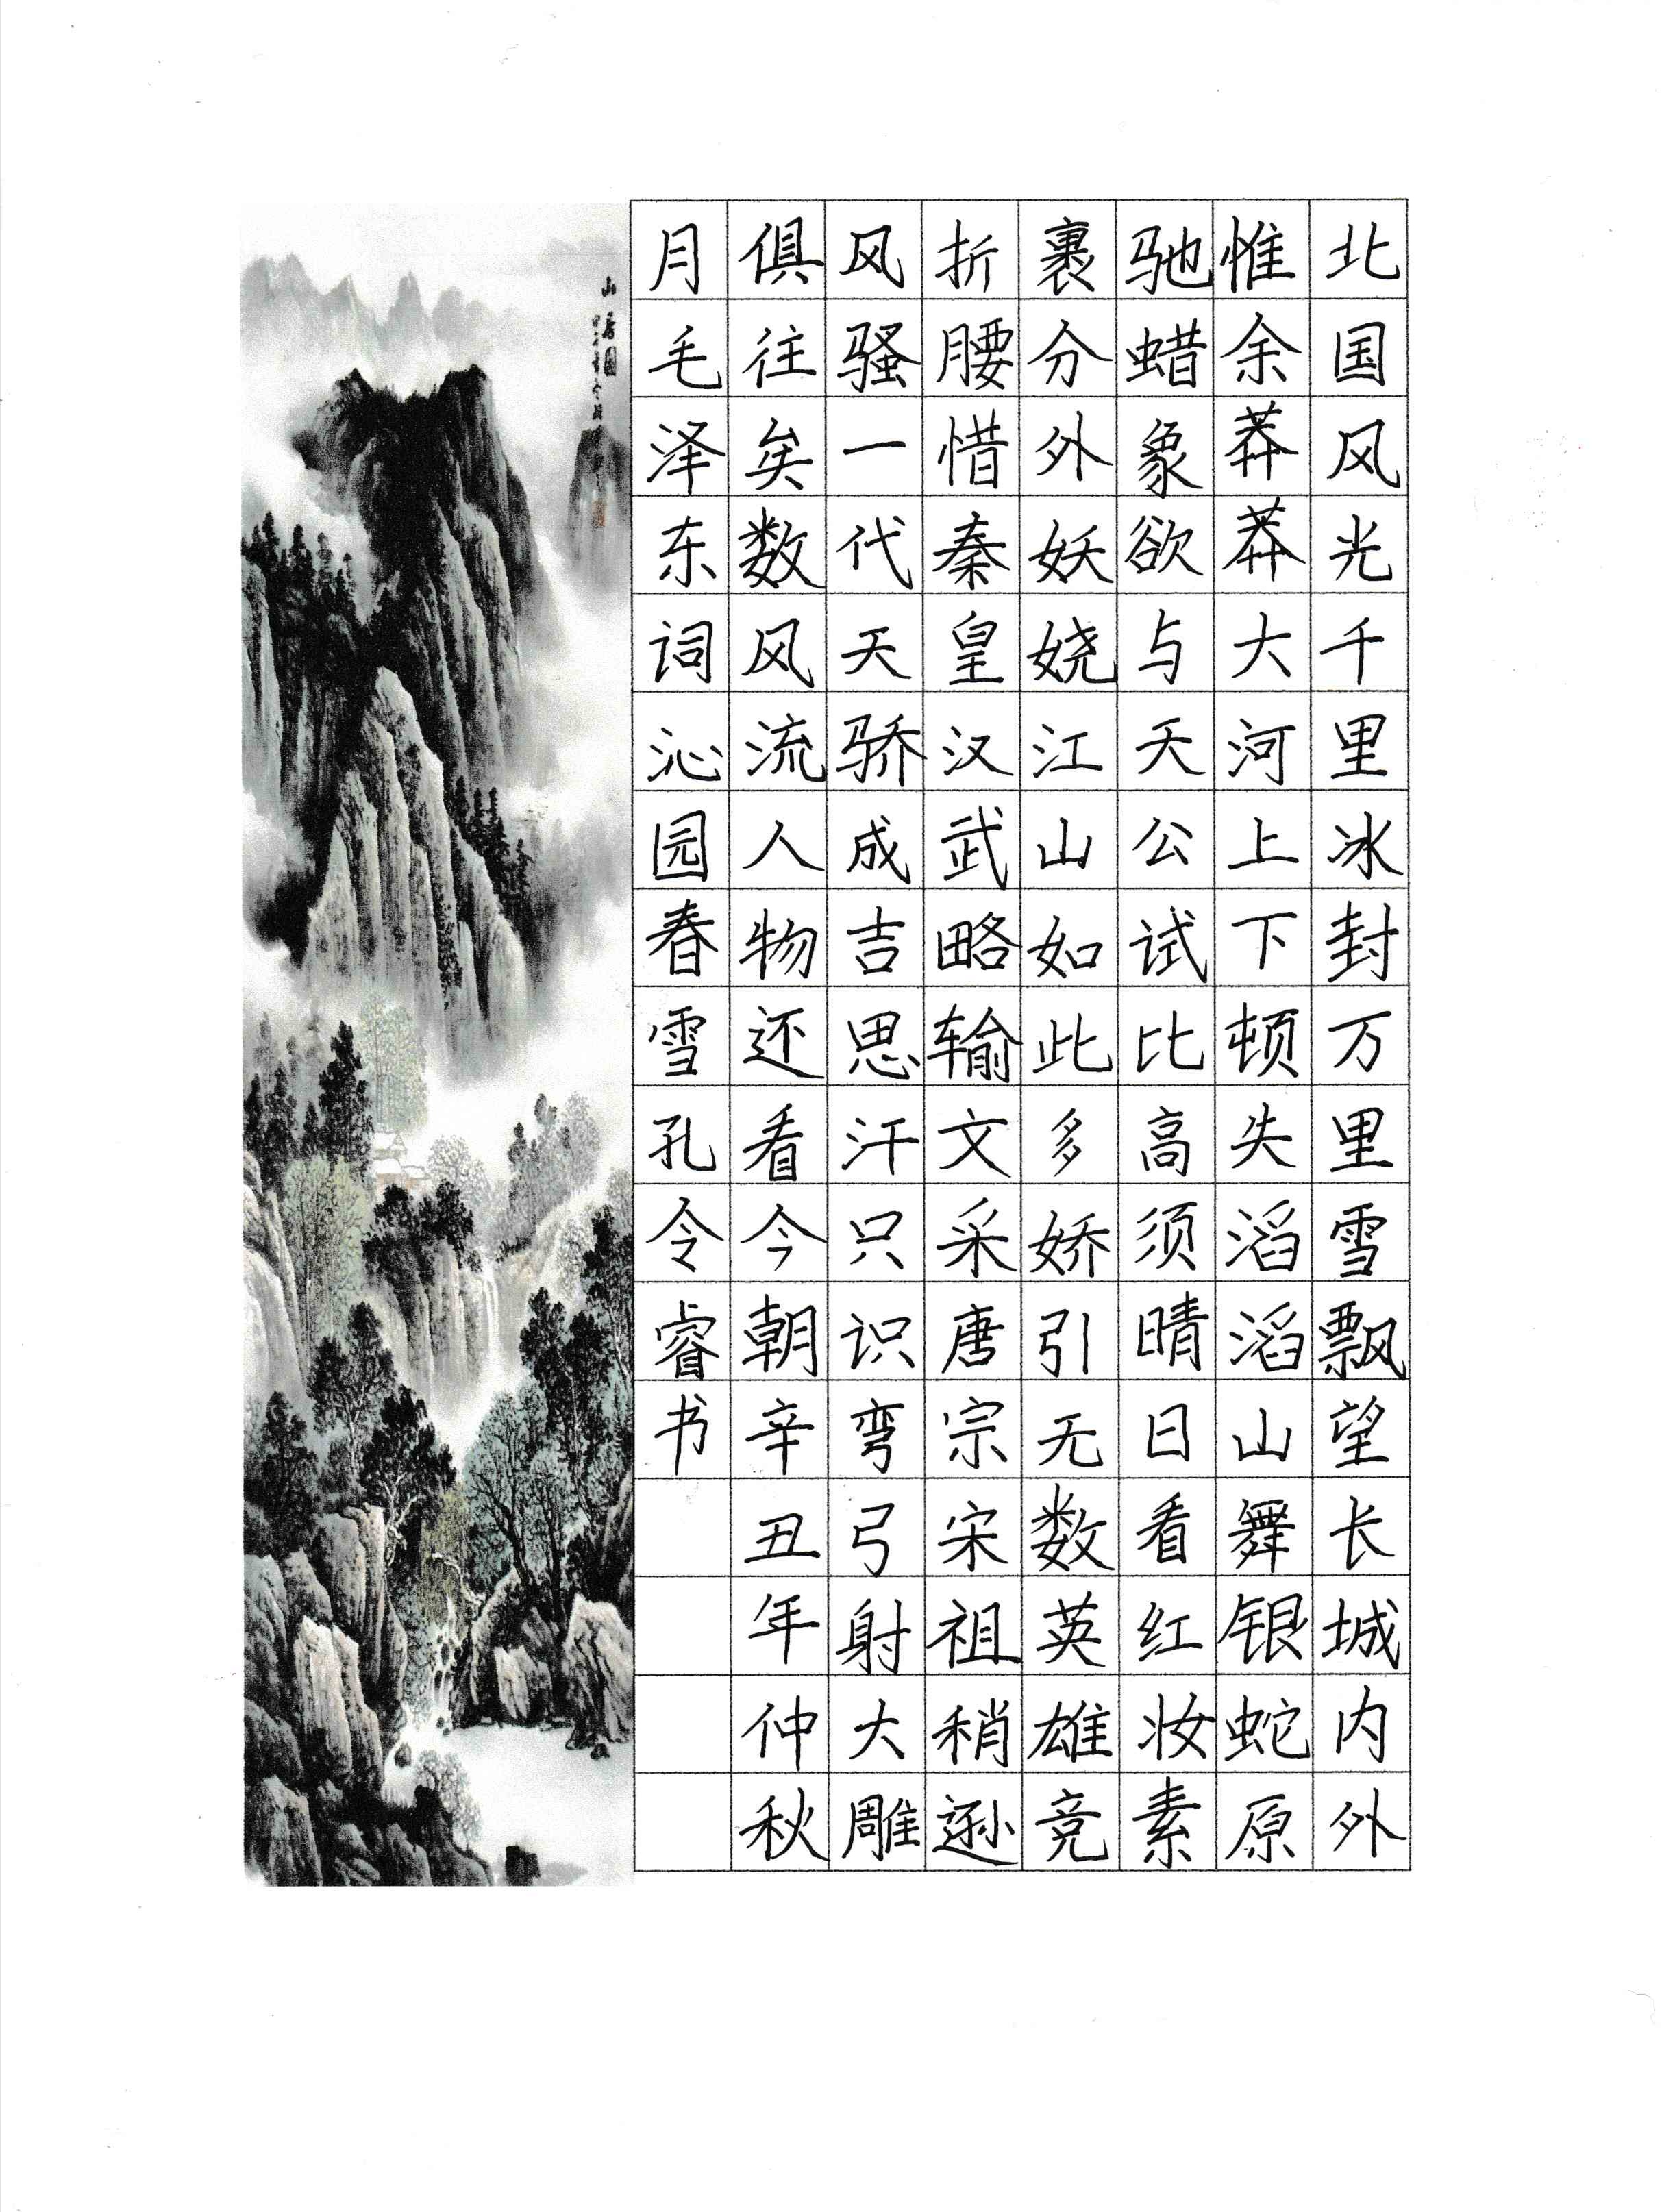 北国风光千里冰封万里雪飘望长城内外
惟余莽莽大河上下顿失滔滔山舞银蛇原
驰蜡象欲与天公试比高须晴日看红妆素
裹分外妖娆江山如此多娇引无数英雄竞
折腰惜秦皇汉武略输文采唐宗宋祖稍逊
风骚一代天骄成吉思汗只识弯弓射大雕
俱往矣数风流人物还看今朝辛丑年仲秋
月毛泽东词沁园春雪孔令睿书
山居图